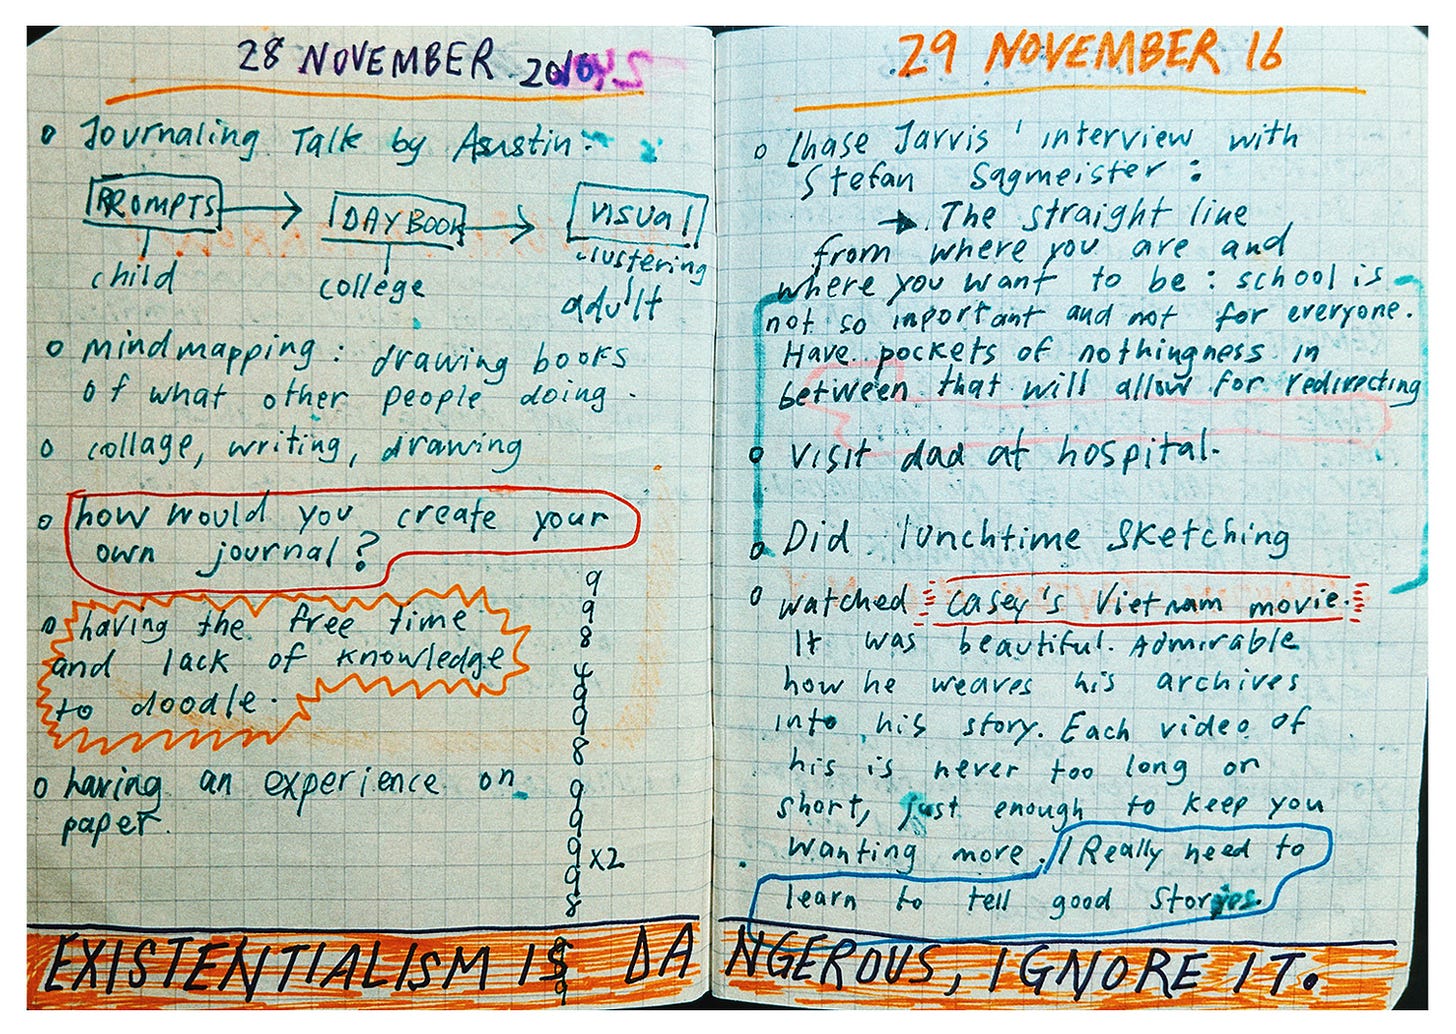 28 NOVEMBER 2016
o Journaling Talk by Asustin:
PROMPTS → DAYBOOK → VISUAL
clustering
child college adult
o mindmapping: drawing books
of what other people doing.
o collage, writing, drawing
o how would you create your
own journal?
o having the free time
and lack of knowledge
to doodle.
o having an experience on
paper.
9
9
8
4
9
9
8
9
9
9 x2
9
8
9
9
EXISTENTIALISM IS DA
29 NOVEMBER 16
o Chase Jarvis' interview with
Stefan Sagmeister:
→ The straight line
from where you are and
where you want to be: school is
not so inportant and not for everyone.
Have pockets of nothingness in
between that will allow for redirecting
o visit dad at hospital.
o Did lunchtime sketching
o watched casey's Vietnam movie.
It was beautiful. Admirable
how he weaves his archives
into his story. Each video of
his is never too long or
short, just enough to keep you
wanting more. I Really need to
learn to tell good stories.
NGEROUS, IGNORE IT.